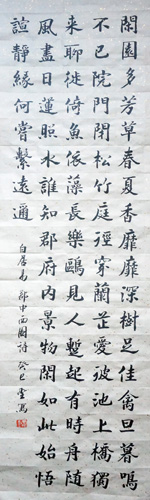 閑園多芳草春夏香靡靡深樹足佳禽旦暮鳴
不已院門閉松竹庭徑穿蘭芷愛彼池上橋獨
來聊徙倚魚依藻長樂鷗見人暫起有時舟隨
風盡日蓮照水誰知郡府內景物閑如此始悟
諠靜緣何嘗繫遠邇
白居易 郡中西園詩 癸巳 雲寫